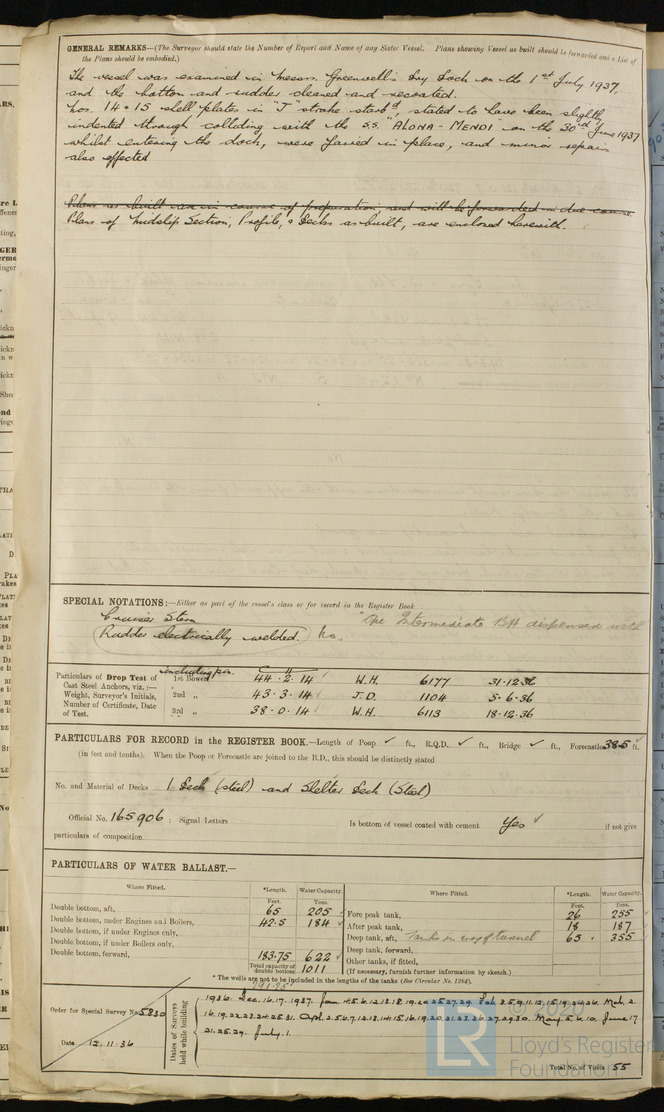 GENERAL REMARKS—(The Surveyor should state the Number of Report and Name of any Sister Vessel. Plans showing Vessel as built should be forwarded and a List of
the Plans should be embodied.)
The vessel was examined in messrs. Greenwell's Dry Dock on the 1st July 1937,
and the bottom and rudder cleaned and recoated.
Nos. 14 & 15 shell plates in "J" strake starbd, stated to have been slightly
indented through colliding with the s.s. "ALONA-MENDI" on the 30th June 1937
whilst entering the dock, were faired in place, and minor repairs
also effected
Plans as built are in course of preparation and will be forwarded in due course
Plans of Midship Section, Profile, & Decks as built, are enclosed herewith.
SPECIAL NOTATIONS:—Either as part of the vessel's class or for record in the Register Book
Cruiser Stern
"One Intermediate BH dispensed with
Rudder electrically welded. No.
Particulars of Drop Test of
Cast Steel Anchors, viz.:—
Weight, Surveyor's Initials,
Number of Certificate, Date
of Test.
including pin
1st Bower 44·2·14 W.H. 6177 31·12·36
2nd „ 43·3·14 J.D. 1104 5·6·36
3rd „ 38·0·14 W.H. 6113 18·12·36
PARTICULARS FOR RECORD in the REGISTER BOOK.—Length of Poop ✓ ft., R.Q.D. ✓ ft., Bridge ✓ ft., Forecastle 38·5 ft.
(in feet and tenths). When the Poop or Forecastle are joined to the B.D., this should be distinctly stated
No. and Material of Decks 1 Deck (steel) and Shelter Deck (Steel)
Official No. 165906; Signal Letters Is bottom of vessel coated with cement Yes ✓ if not give
particulars of composition
PARTICULARS OF WATER BALLAST.—
Where Fitted. *Length. Water Capacity. Where Fitted. *Length. Water Capacity.
Feet. Tons. Feet. Tons.
Double bottom, aft, 65 205 Fore peak tank, 26 255
Double bottom, under Engines and Boilers, 42·5 184 After peak tank, 18 187
Double bottom, if under Engines only, Deep tank, aft, Tanks in way of tunnel 65 355
Double bottom, if under Boilers only, Deep tank, forward,
Double bottom, forward, 183·75 622 Other tanks, if fitted,
Total capacity of double bottom 1011 (If necessary, furnish further information by sketch.)
* The wells are not to be included in the lengths of the tanks (See Circular No. 1284).
Order for Special Survey No. 5830
Date 12.11.36
Dates of Surveys held while building
1936. Dec. 16. 17. 1937. Jan. 4. 5. 6. 12. 13. 18. 19. 20. 25. 27. 29. Feb. 3. 5. 9. 11. 12. 15. 19. 24. 26. Mch. 2.
16. 19. 22. 23. 24. 25. 31. Apl. 2. 5. 6. 7. 12. 13. 14. 15. 16. 19. 20. 21. 23. 26. 27. 29. 30. May. 5. 6. 10. June 17
21. 25. 29. July. 1.
Total No. of Visits 55
LR
© 2020
Lloyd's Register
Foundation